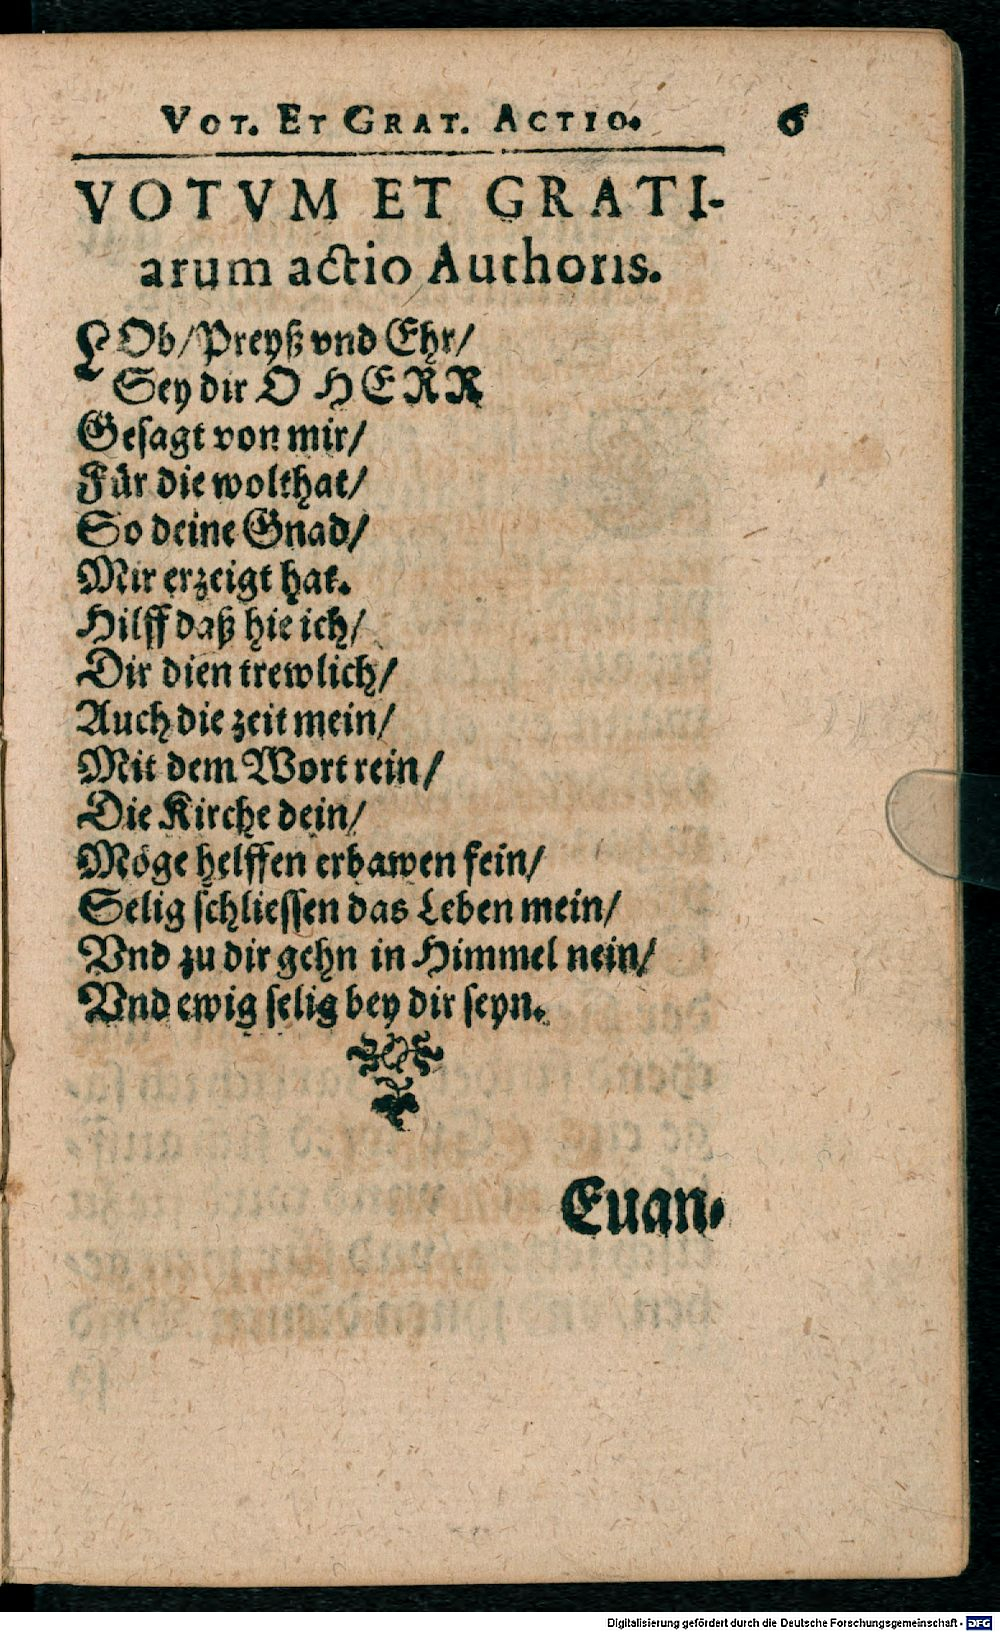 VOT. ET GRAT. ACTIO. 6
VOTVM ET GRATI-
arum actio Authoris.
LOb/Preyß vnd Ehr/
Sey dir O HERR
Gesagt von mir/
Für die wolthat/
So deine Gnad/
Mir erzeigt hat.
Hilff daß hie ich/
Dir dien trewlich/
Auch die zeit mein/
Mit dem Wort rein/
Die Kirche dein/
Möge helffen erbawen fein/
Selig schliessen das Leben mein/
Vnd zu dir gehn in Himmel nein/
Vnd ewig selig bey dir seyn.
Euan-
Digitalisierung gefördert durch die Deutsche Forschungsgemeinschaft - DFG